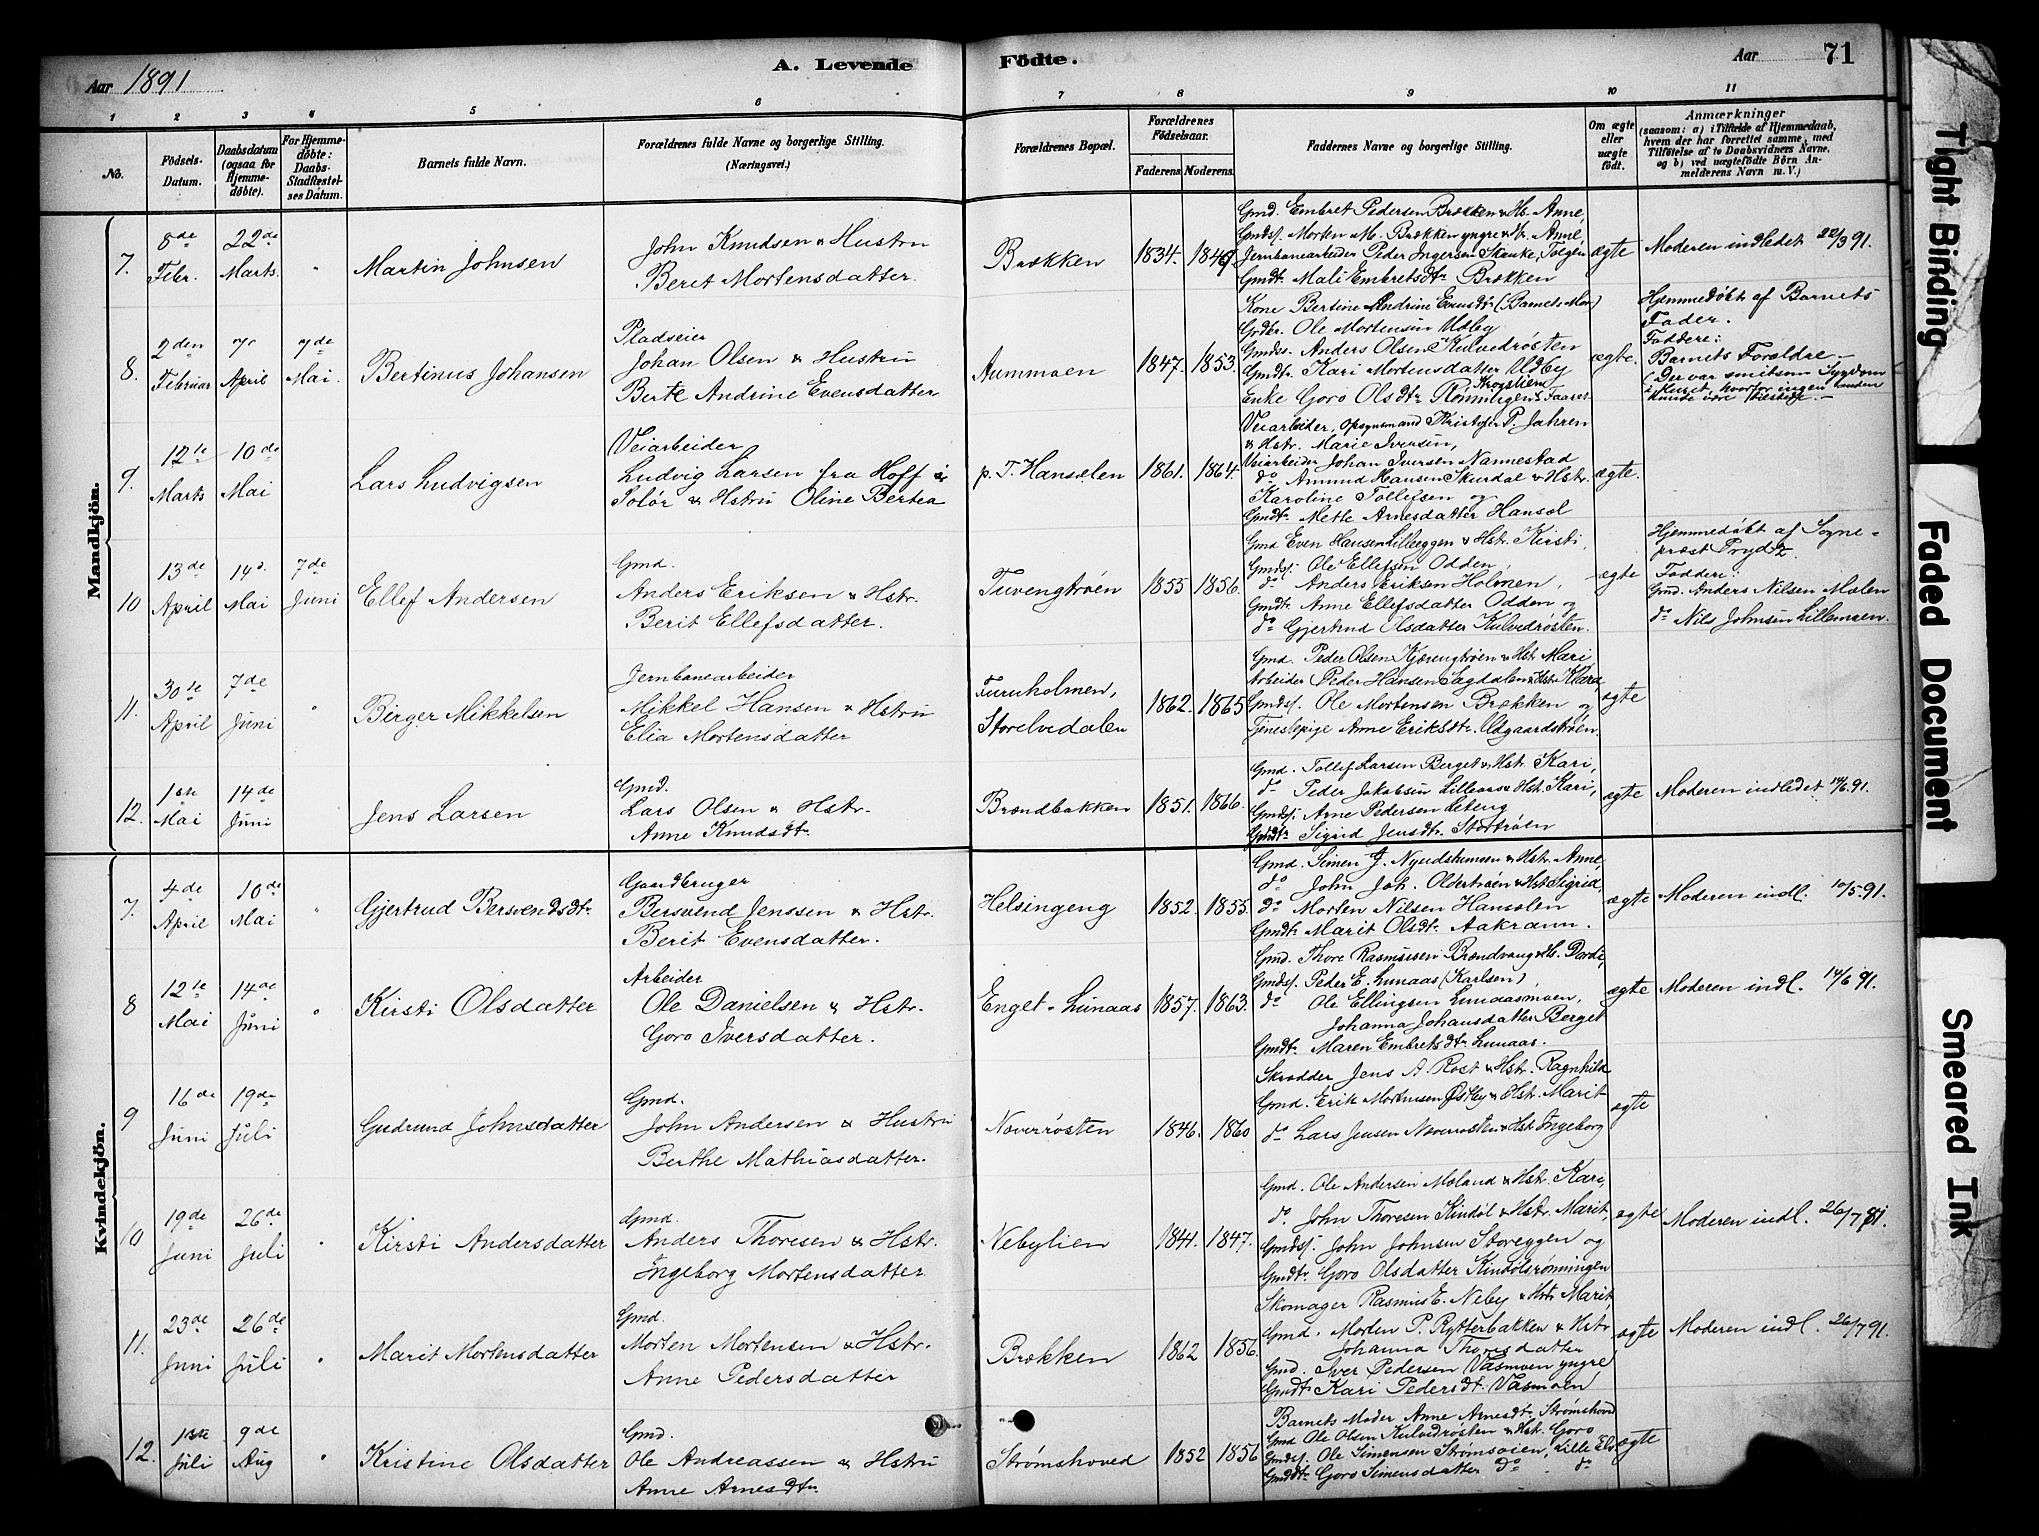 Aar 1891
A. Levende Födte.
Aar
71
1 2 3 4 5 6 7 8 9 10 11
No.
Födsels-Datum.
Daabsdatum (ogsaa for Hjemmedöbte).
For Hjemmedöbte: Daabs-Stadfæstelses Datum.
Barnets fulde Navn.
Forældrenes fulde Navne og borgerlige Stilling.
(Næringsvei.)
Forældrenes Bopæl.
Forældrenes Födselsaar.
Faderens Moderens.
Faddernes Navne og borgerlige Stilling.
Om ægte eller uægte födt.
Anmærkninger
(saasom: a) i Tilfælde af Hjemmedaab, hvem der har forrettet samme, med Tilföielse af to Daabsvidners Navne, og b) ved uægtefödte Börn Anmelderens Navn m. V.)
Mandkjön.
7. 8de Febr. 22de Marts. " Martin Johnsen
John Knudsen & Hustru
Beret Mortensdatter.
Brækken 1834. 1849
Gmd. Embret Pedersen Brækken & Hs. Anne,
Gmdss. Morten M. Brækken yngre & Hr. Anne,
Jernbanearbeider Peder Ingersen Skanke, Tolgen
Gmdt. Mali Embretsdtr Brækken
ægte Moderen indledet 22/3 91.
8. 2den Februar 7r April 7de Mai. Bertinus Johansen
Pladseier
Johan Olsen & Hustru
Berte Andrine Evensdatter
Aummoen 1847. 1853.
Kone Bertine Andrine Evensdtr (Barnets Mor)
Grdbr. Ole Mortensen Udby
Gmdss. Anders Olsen Kulvedrösten
Gmdtr. Kari Mortensdatter Udby
Enke Goro Olsdtr Rönningen Krogstien Faaset
ægte.
Hjemmedöbt af Barnets
Fader.
Faddere:
Barnets Forældre
(Der var smitsom Sygdom
i Huset, hvorfor ingen anden
kunde være tilstede. —
9. 12te Marts 10de Mai Lars Ludvigsen
Veiarbeider
Ludvig Larsen fra Hoff i
Solör & Hstru Oline Bertea
p. T. Hansælen 1861. 1864.
Veiarbeider, Opsynsmand Kristofer P. Jahren
& Hstr. Marie Iversen,
Veiarbeider Johan Iversen Nannestad
do Amund Hansen Skurdal & Hstr.
Karoline Tollefsen og
Gmdtr. Mette Arnesdatter Hansæl
ægte.
10. 13de April 14d. Mai 7de Juni Ellef Andersen
Gmd.
Anders Eriksen & Hstr.
Berit Ellefsdatter.
Tuvengtröen 1855 1856.
Gmd Even Hansen Lilleeggen & Hstr. Kirsti,
Gmdsf. Ole Ellefsen Odden,
do Anders Eriksen Holmen,
Gmdtr. Anne Ellefsdatter Odden og
do Gjertrud Olsdatter Kulvedrösten.
ægte
Hjemmedöbt af Sogne-
præst Prydz.
Faddere:
Gmd. Anders Nilsen Mælen
do Nils Johnsen Lillemoen.
11. 30te April 7de Juni " Birger Mikkelsen
Jernbanearbeider
Mikkel Hansen & Hstru
Elia Mortensdatter
Furuholmen,
Storelvedalen
1862. 1865
Gmd. Peder Olsen Kjærengtröen & Hst. Mari
Arbeider Peder Hansen Sagdalen & Hstr. Klara,
Gmdsf. Ole Mortensen Brækken og
Tjenestepige Anne Eriksdtr. Udgaardströen.
ægte
12. 1ste Mai 14de Juni Jens Larsen
Gmd.
Lars Olsen & Hstr.
Anne Knudsdtr.
Brændbakken 1851. 1866.
Gmd. Tollef Larsen Berget & Hst. Kari,
do Peder Jakobsen Lilleaas & Hst. Kari,
Gmdsf. Arne Pedersen Leteng
Gmdtr. Sigrid Jensdtr. Stortröen
ægte Moderen indledet 14/6 91.
Kvindekjön.
7. 4de April 10de Mai " Gjertrud Bersvendsdtr
Gaardbruger
Bersvend Jenssen & Hstr.
Berit Evensdatter.
Helsingeng 1852. 1855.
Gmd. Simen J. Nyeudstumoen & Hstr. Anne
do John Joh. Oldertröen & Hst Sigrid,
do Morten Nilsen Hansælen
Gmdtr. Marit Olsdtr. Aakrann.
ægte Moderen indl. 10/5 91.
8 12te Mai 14de Juni " Kirsti Olsdatter
Arbeider
Ole Danielsen & Hstr.
Goro Iversdatter.
Enget - Lunaas 1857. 1863.
Gmd. Thore Rasmussen Brændvang & Hs. Dordi,
Gmdsf. Peder E. Lunaas (Karlsen),
do Ole Ellingsen Lunaasmoen,
Johanna Johansdatter Berget
Gmdtr. Maren Embretsdtr. Lunaas.
ægte Moderen indl. 14/6 91.
9 16de Juni 19de Juli Gudrund Johnsdatter
Gmd.
John Andersen & Hustru
Berthe Mathiasdatter.
Neverrösten 1846. 1860
Skrædder Jens A. Röst & Hstr. Ragnhild
Gmd. Erik Mortensen Östby & Hstr. Marit
do Lars Jensen Neverrösten & Hst. Ingeborg
ægte
10 19de Juni 26de Juli " Kirsti Andersdatter
Gmd.
Anders Thoresen & Hstr.
Ingeborg Mortensdatter
Nebylien 1844. 1847.
Gmd. Ole Andersen Mæland & Hstr. Kari,
do John Thoresen Kindöl & Hstr. Marit,
Gmdsf. John Johnsen Storeggen og
Gmdtr. Goro Olsdatter Kindölsrönningen
ægte Moderen indl. 26/7 91.
11. 23de Juni 26de Juli " Marit Mortensdatter
Gmd.
Morten Mortensen & Hstr.
Anne Pedersdatter
Brækken 1862 1856.
Skomager Rasmus E. Neby & Hstr. Marit,
Gmd. Morten P. Rytterbakken & Hstr
Johanna Thoresdatter
Gmd. Iver Pedersen Vasmoen yngre
Gmdtr. Kari Pedersdt. Vasmoen
ægte Moderen indl. 26/7 91.
12. 1ste Juli 9de Aug " Kristine Olsdatter
Gmd.
Ole Andreassen & Hstru
Anne Arnesdtr.
Strömshoved 1852 1856
Barnets Moder Anne Arnesdtr. Strömshoved
Gmd Ole Olsen Kulvedrösten & Hst. Goro
Gmdsf. Ole Simensen Strömsöien, Lille Elv
Gmdtr. Goro Simensdatter do do
ægte
Tight Binding
Faded Document
Smeared Ink